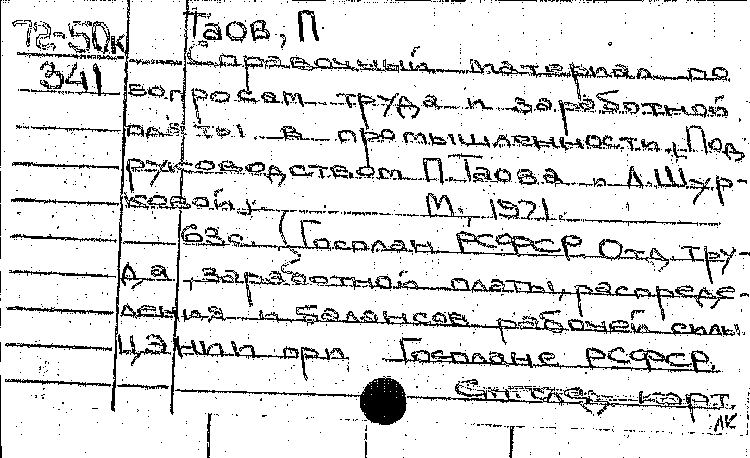 72-50к Таов, П
341 Справочный материал по
вопросам труда и заработной
платы в промышленности. (Под
руководством П.Таова и Л.Шур-
ковой). М., 1971.
63 с. (Госплан РСФСР Отд. тру-
да, заработной платы, распреде-
ления и балансов рабочей силы
ЦЭНИИ при Госплане РСФСР.
См. след. карт.
ЛК